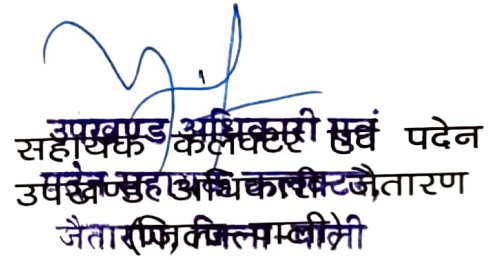 उपखण्ड अधिकारी एवं
सहायक कलेक्टर एवं पदेन
पदेन सहायक कलेक्टर,
उपखण्ड अधिकारी जैतारण
जैतारण, जिला-